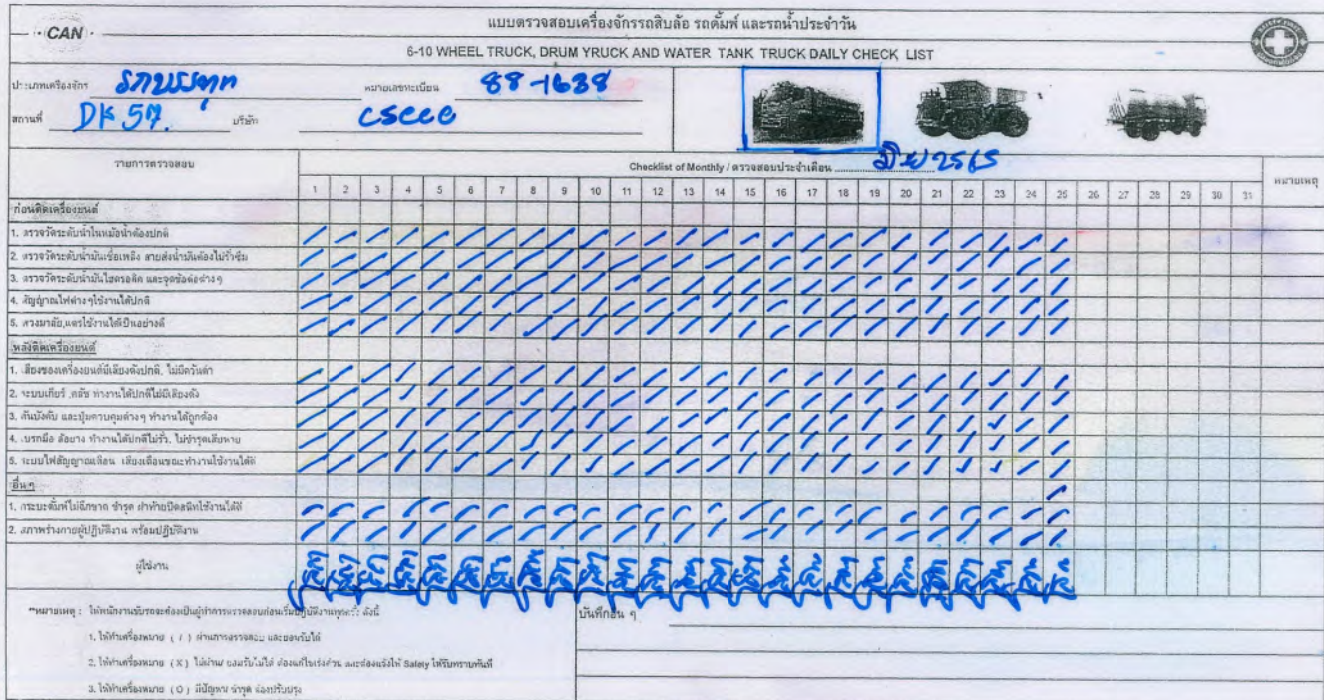 CAN
แบบตรวจสอบเครื่องจักรรถสิบล้อ รถดั้มพ์ และรถน้ำประจำวัน
6-10 WHEEL TRUCK, DRUM YRUCK AND WATER TANK TRUCK DAILY CHECK LIST
ประเภทเครื่องจักร รถบรรทุก หมายเลขทะเบียน 88-1638
สถานที่ บริษัท
รายการตรวจสอบ Checklist of Monthly / ตรวจสอบประจำเดือน 2565 หมายเหตุ
1 2 3 4 5 6 7 8 9 10 11 12 13 14 15 16 17 18 19 20 21 22 23 24 25 26 27 28 29 30 31
ก่อนติดเครื่องยนต์
1. ตรวจวัดระดับน้ำในหม้อน้ำต้องปกติ
2. ตรวจวัดระดับน้ำมันเชื้อเพลิง สายส่งน้ำมันต้องไม่รั่วซึม
3. ตรวจวัดระดับน้ำมันไฮดรอลิค และจุดข้อต่อต่างๆ
4. สัญญาณไฟต่างๆใช้งานได้ปกติ
5. พวงมาลัย,แตรใช้งานได้เป็นอย่างดี
หลังติดเครื่องยนต์
1. เสียงของเครื่องยนต์มีเสียงดังปกติ, ไม่มีควันดำ
2. ระบบเกียร์ ,คลัช ทำงานได้ปกติไม่มีเสียงดัง
3. คันบังคับ และปุ่มควบคุมต่างๆ ทำงานได้ถูกต้อง
4. เบรกมือ ล้อยาง ทำงานได้ปกติไม่รั่ว, ไม่ชำรุดเสียหาย
5. ระบบไฟสัญญาณเตือน เสียงเตือนขณะทำงานใช้งานได้ดี
อื่นๆ
1. กระบะดั้มพ์ไม่ฉีกขาด ชำรุด ฝาท้ายปิดสนิทใช้งานได้ดี
2. สภาพร่างกายผู้ปฏิบัติงาน พร้อมปฏิบัติงาน
ผู้ใช้งาน
**หมายเหตุ : ให้พนักงานขับรถจะต้องเป็นผู้ทำการตรวจสอบก่อนเริ่มปฏิบัติงานทุกครั้ง ดังนี้
1. ให้ทำเครื่องหมาย ( / ) ผ่านการตรวจสอบ และยอมรับได้
2. ให้ทำเครื่องหมาย ( X ) ไม่ผ่าน ยอมรับไม่ได้ ต้องแก้ไขเร่งด่วน และต้องแจ้งให้ Safety ให้รับทราบทันที
3. ให้ทำเครื่องหมาย ( O ) มีปัญหา ชำรุด ต้องปรับปรุง
บันทึกอื่น ๆ